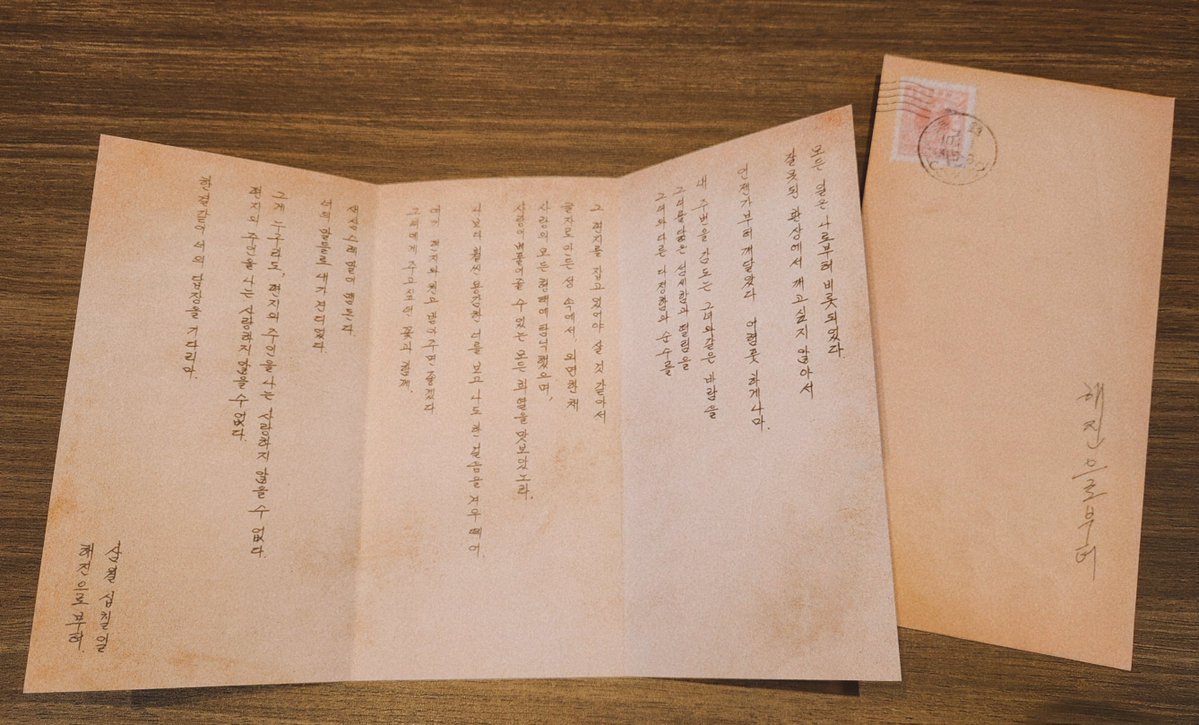 모든 일은 나로부터 비롯되었다.
잘못된 환상에서 깨고싶지 않아서
언젠가부터 깨달았다 어렴풋 하게나마.
내 주변을 감도는 그녀와같은 바람을
그녀를닮은 섬세함과 떨림을
그녀와 다른 다정함과 순수를
그 편지를 잡고 있어야 살 것 같아서
글자로 이룬 성 속에서, 외면한 채
사랑의 모든 형태에 탐닉했으며,
사랑이베풀어줄 수 있는 모든 희열을 맛보았노라.
나보다 훨씬 용감한 너를 보고 나도 한 걸음을 겨우 떼어
편지와
그대에게 주고싶은 꽃과 함께.
선의 말들을 내가 전디었다.
그게 누구라도, 편지의 주인을 나는 사랑하지 않을 수 없다.
편지의 주인을 나는 사랑하지않을 수 없었다.
한결같이 선의 답장을 기다리며.
삼월 십칠일
해진으로부터.
해진으로부터